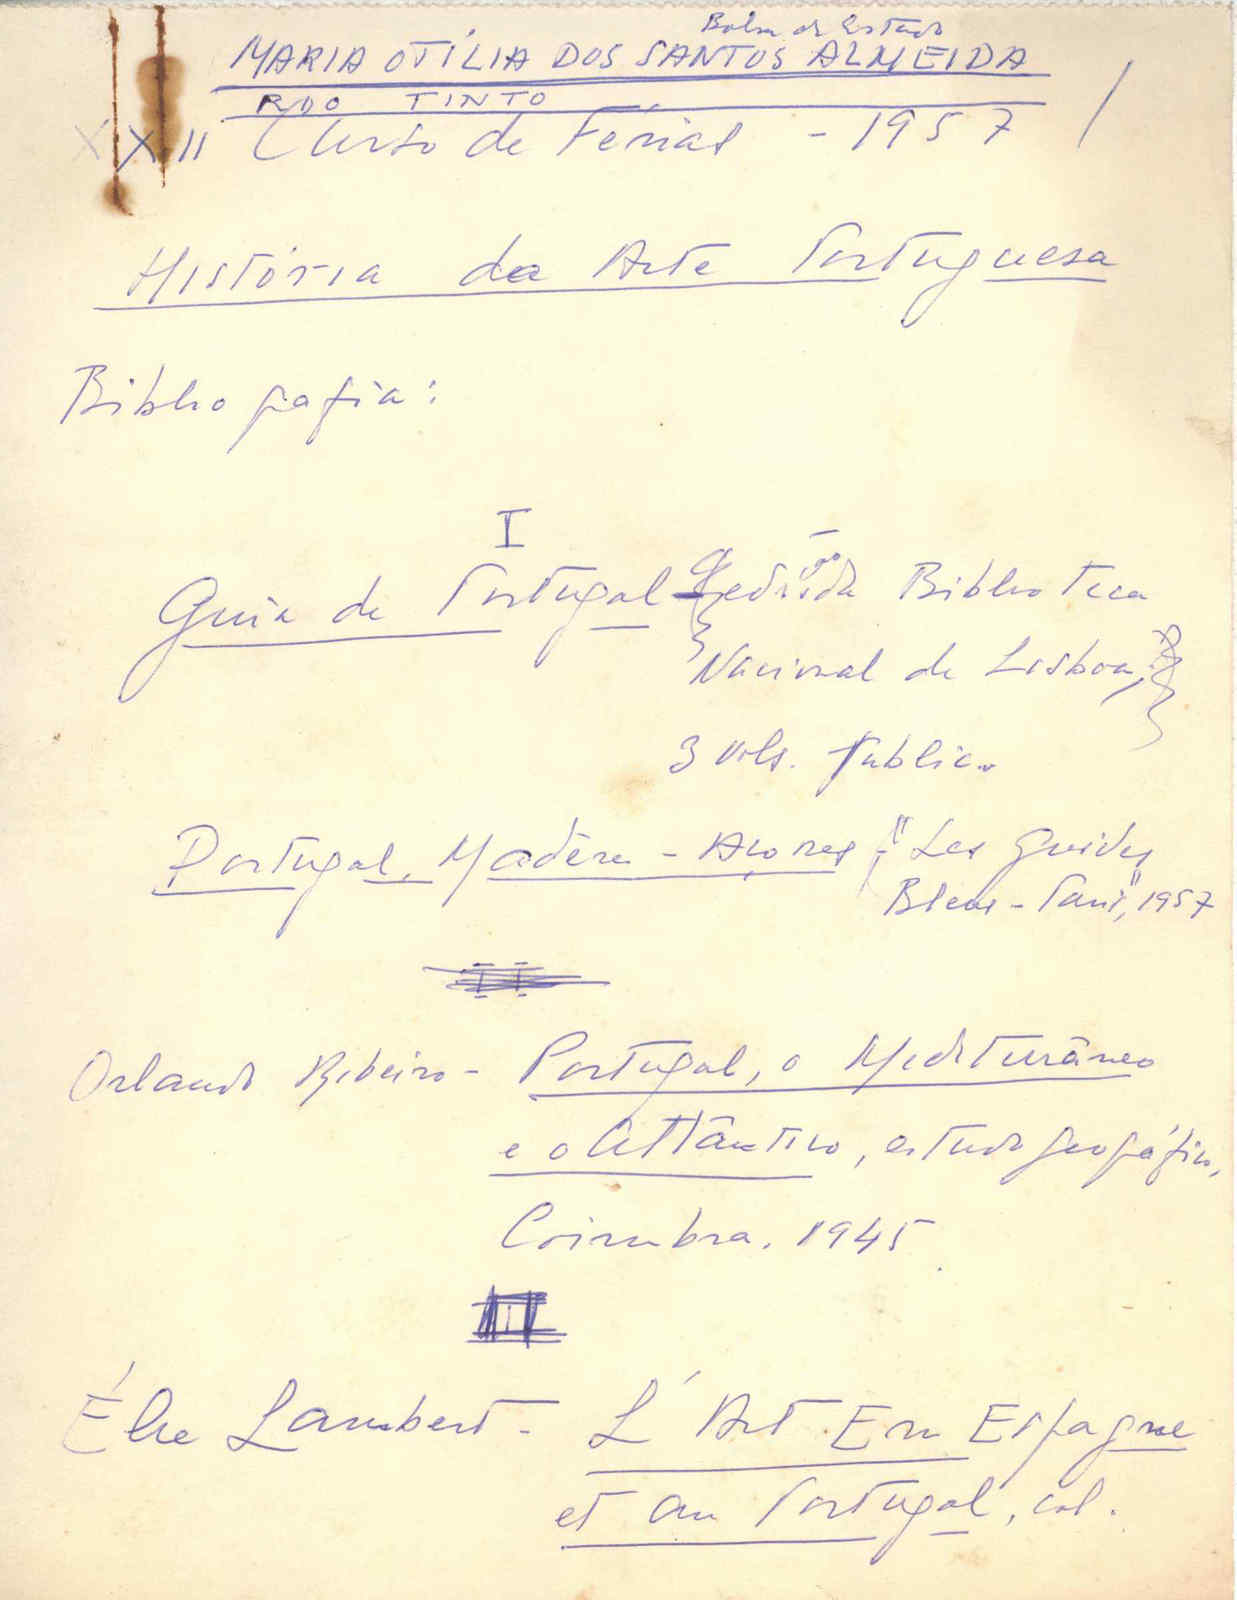 Bolsa de Estudo
MARIA OTÍLIA DOS SANTOS ALMEIDA
RIO TINTO
XXII Curso de Férias - 1957
História da Arte Portuguesa
Bibliografia:
I
Guia de Portugal ed. da Biblioteca
Nacional de Lisboa,
3 vols. public.
Portugal, Madère - Açores "Les Guides
Bleus - Paris", 1957
II
Orlando Ribeiro - Portugal, o Mediterrâneo
e o Atlântico, estudo geográfico,
Coimbra, 1945
Élie Lambert - L'Art En Espagne
et au Portugal, col.